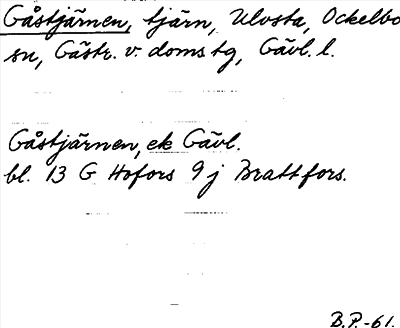 Gåstjärnen, tjärn, Ulvsta, Ockelbo
sn, Gästr. v. doms tg, Gävl. l.
Gåstjärnen, ek Gävl.
bl. 13 G Hofors 9 j Brattfors.
B.P.-61.